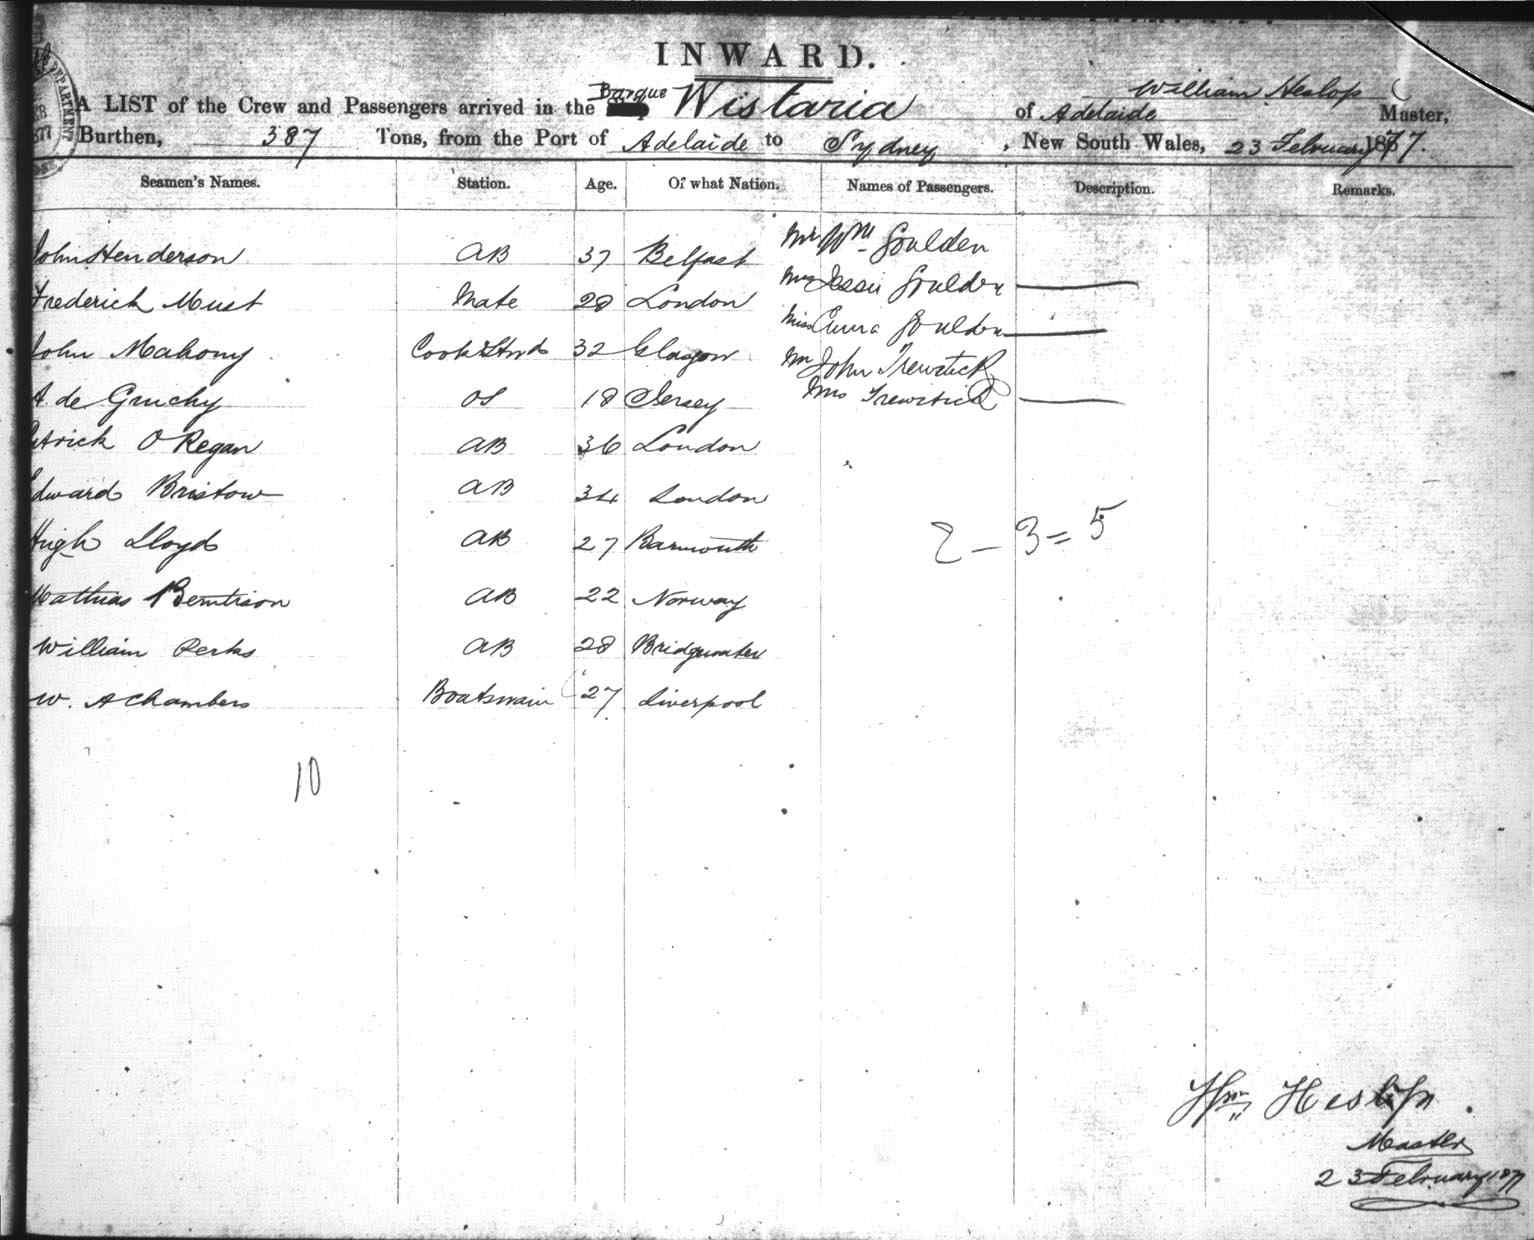 INWARD.
A LIST of the Crew and Passengers arrived in the Barque Wistaria of Adelaide William Heslop Master,
Burthen, 387 Tons, from the Port of Adelaide to Sydney, New South Wales, 23 February 1877.
Seamen's Names. Station. Age. Of what Nation. Names of Passengers. Description. Remarks.
John Henderson AB 37 Belfast Mr Wm Goulden
Frederick Must Mate 28 London Mrs Jessie Goulden
John Mahony Cook & Stwd 32 Glasgow Miss Goulden
A. de Gruchy OS 18 Jersey Mr John Trewitick
Mrs Trewitick
Patrick O Regan AB 36 London
Edward Bristow AB 34 London
Hugh Lloyd AB 27 Barmouth
2 - 3 = 5
Mathias Berntison AB 22 Norway
William Perks AB 28 Bridgwater
W. A Chambers Boatswain 27 Liverpool
10
Wm Heslop
Master
23 February 1877